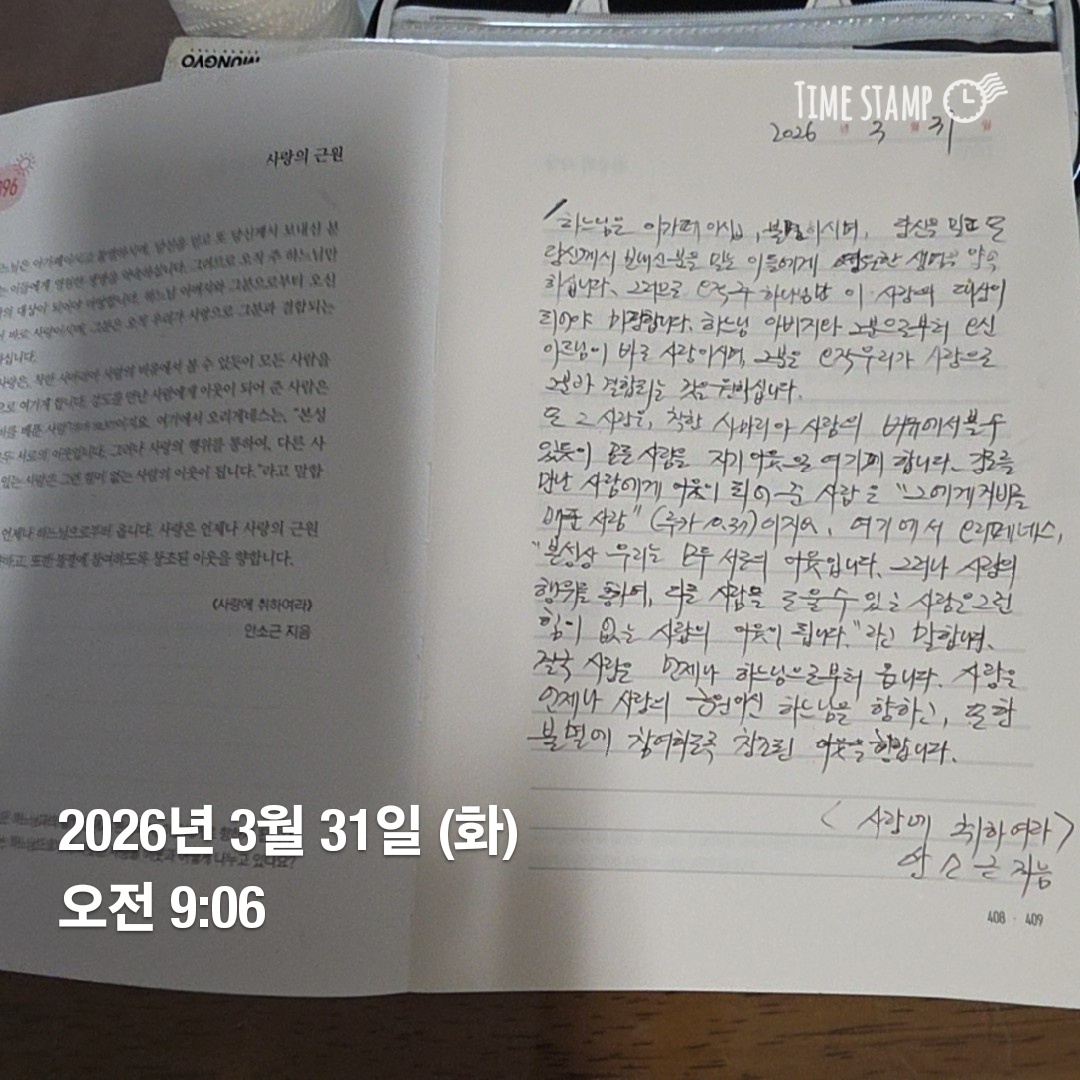 MUNGYO
TIME STAMP
396
사랑의 근원
하느님은 아가페이시고 불멸이시며, 당신을 믿고 또 당신께서 보내신 분
는 이들에게 영원한 생명을 약속하십니다. 그러므로 오직 주 하느님만
의 대상이 되어야 마땅합니다. 하느님 아버지와 그분으로부터 오신
이 바로 사랑이시며, 그분은 오직 우리가 사랑으로 그분과 결합되는
하십니다.
사랑은, 착한 사마리아 사람의 비유에서 볼 수 있듯이 모든 사람을
으로 여기게 합니다. 강도를 만난 사람에게 이웃이 되어 준 사람은
비를 베푼 사람"이지요. 여기에서 오리게네스는, "본성
모두 서로의 이웃입니다. 그러나 사랑의 행위를 통하여, 다른 사
있는 사람은 그런 힘이 없는 사람의 이웃이 됩니다."라고 말합
언제나 하느님으로부터 옵니다. 사랑은 언제나 사랑의 근원
향하고, 또한 불멸에 참여하도록 창조된 이웃을 향합니다.
《사랑에 취하여라》
안소근 지음
2026 년 3 월 31 일
하느님은 아가페이시고, 불멸이시며, 당신을 믿고 또
당신께서 보내신분을 믿는 이들에게 영원한 생명을 약속
하십니다. 그러므로 오직주 하나님만 이 사랑의 대상이
되어야 마땅합니다. 하느님 아버지와 그분으로부터 오신
아드님이 바로 사랑이시며, 그분은 오직우리가 사랑으로
그분과 결합되는 것을 원하십니다.
또 그 사랑은, 착한 사마리아 사람의 비유에서볼수
있듯이 모든 사람을 자기 이웃으로 여기게 합니다. 강도를
만난 사람에게 이웃이 되어준 사람은 "그에게 자비를
베푼 사람" (루카 10.37)이지요, 여기에서 오리게네스,
"본성상 우리는 모두 서로의 이웃입니다. 그러나 사랑의
행위를 통하여, 다른 사람을 도울수 있는 사람은그런
힘이 없는 사람의 이웃이 됩니다."라고 말합니다.
결국 사랑은 언제나 하느님으로부터 옵니다. 사랑은
언제나 사랑의 근원이신 하느님을 향하고, 또한
불멸에 참여하도록 창조된 이웃을 향합니다.
< 사랑에 취하여라>
안소근 지음
408 · 409
2026년 3월 31일 (화)
오전 9:06